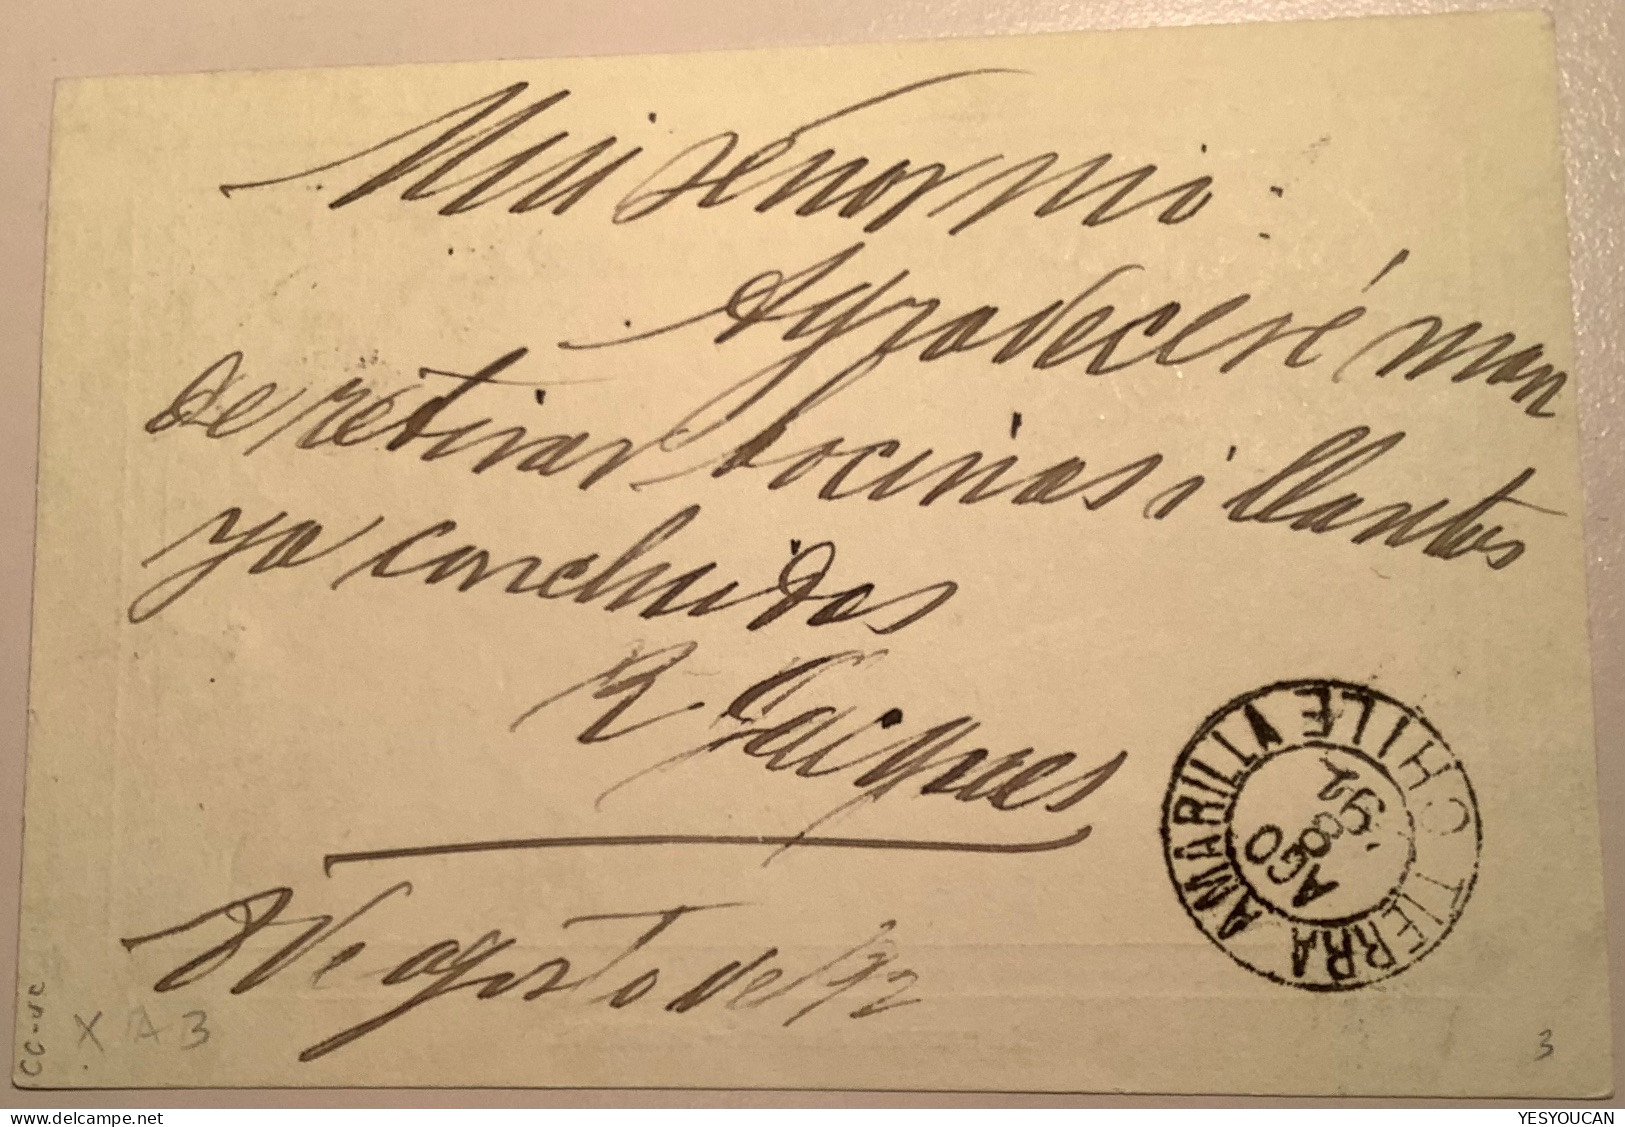 Mui señor mio:
Agradeceré man
de retirar bocinas i llantas
ya concluidas
R Jacques
8 de agosto de 92
TIERRA AMARILLA CHILE
AGO
8
92
CC-UC
X A 3
3
YESYOUCAN